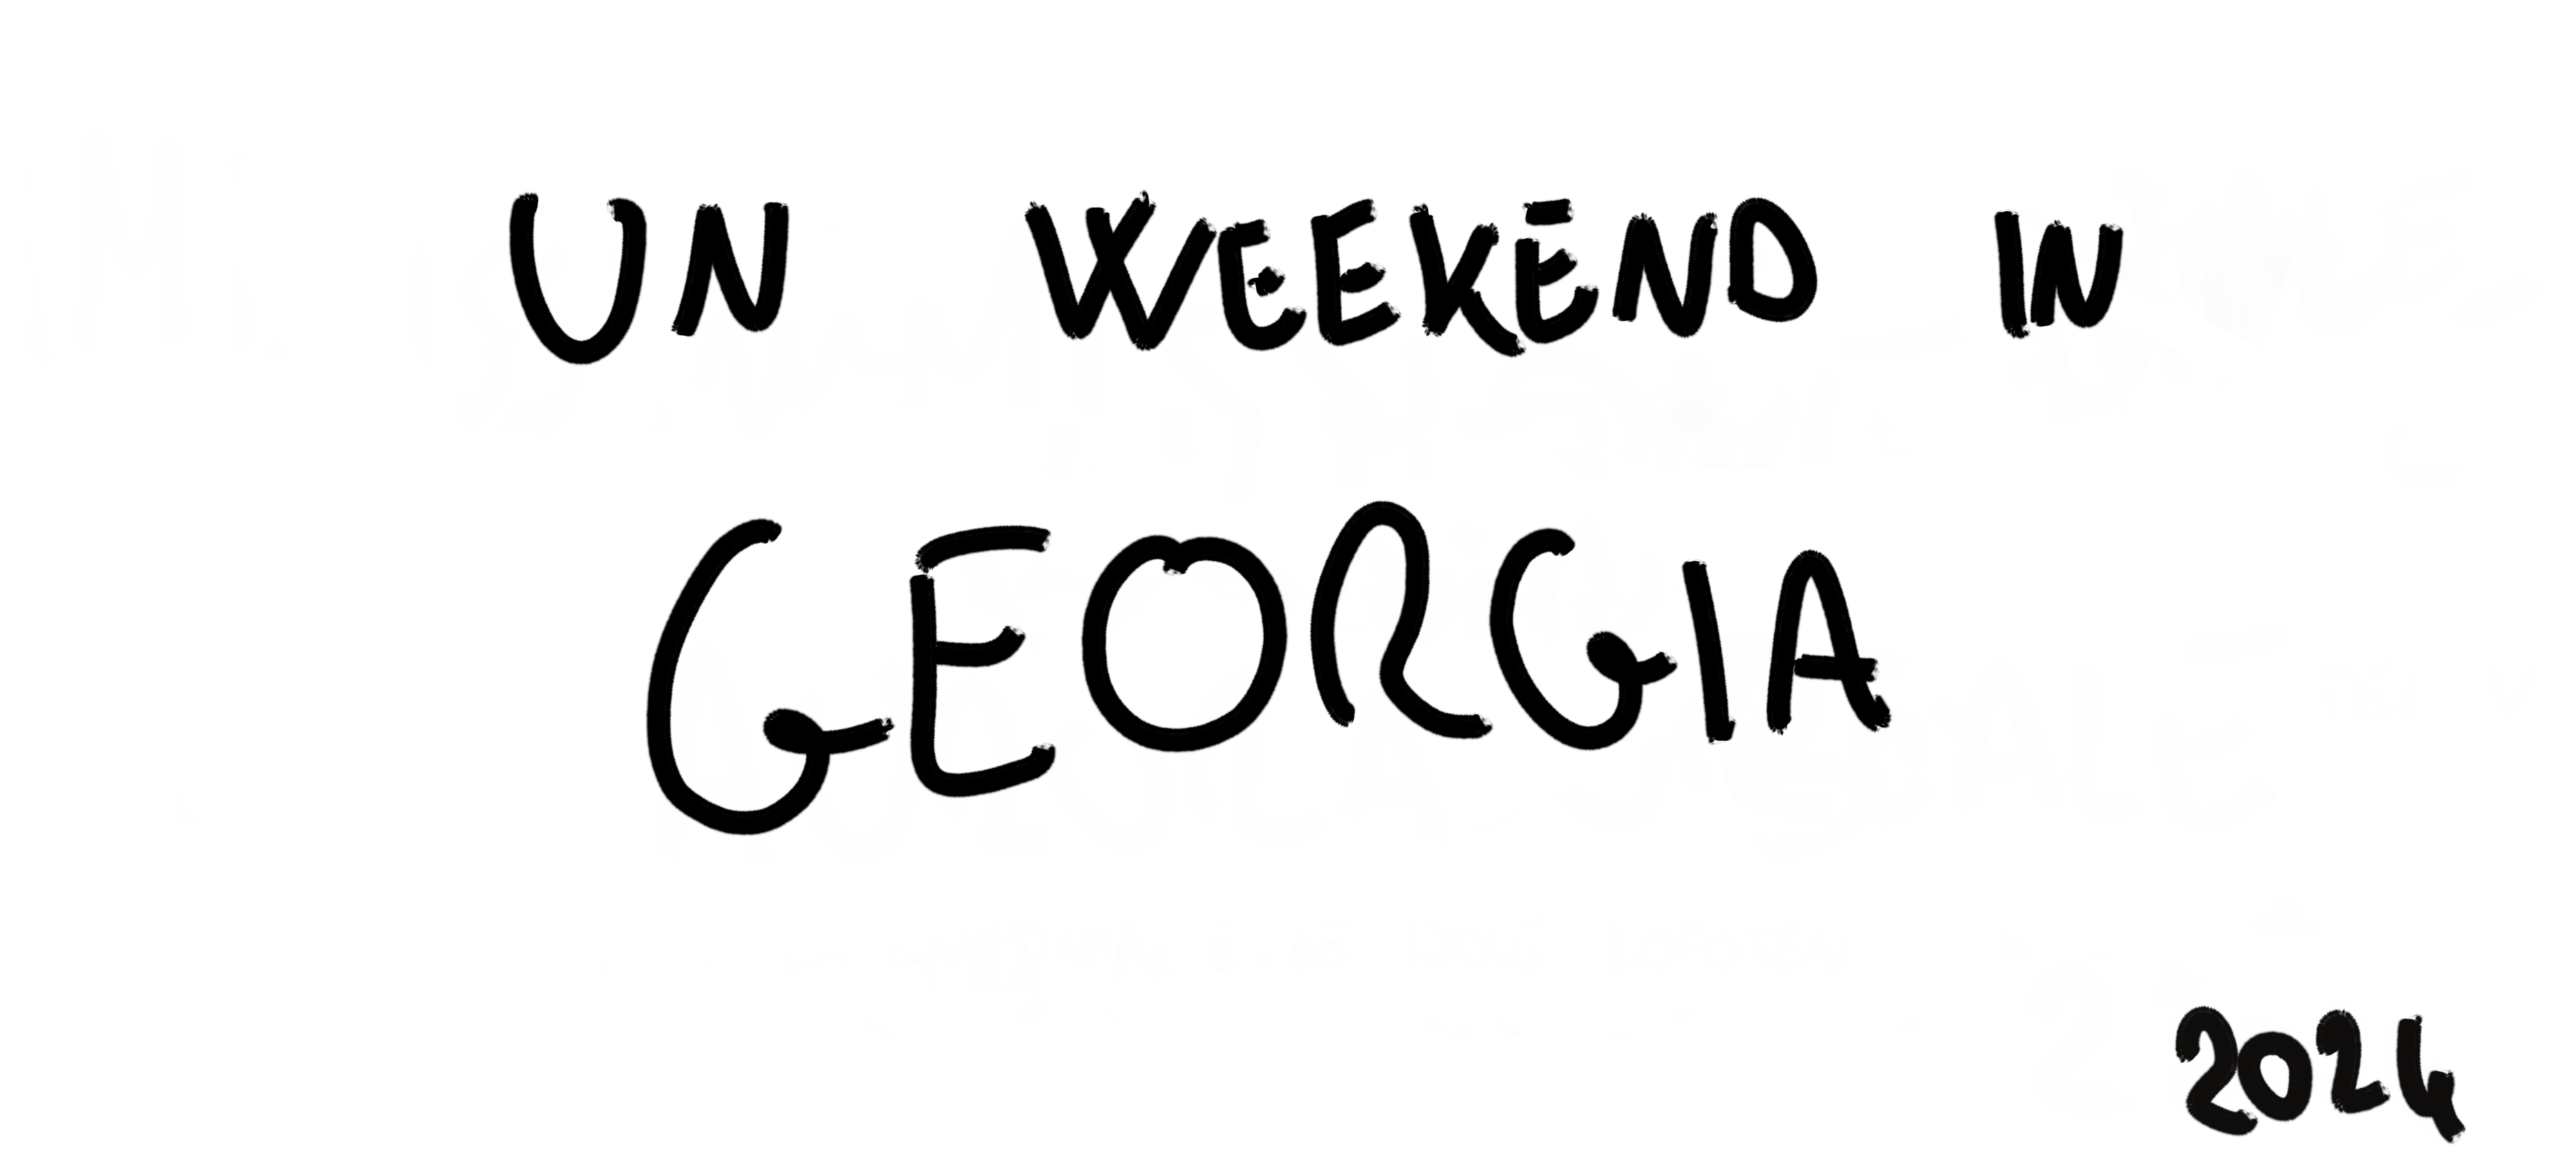 UN WEEKEND IN
GEORGIA
2024